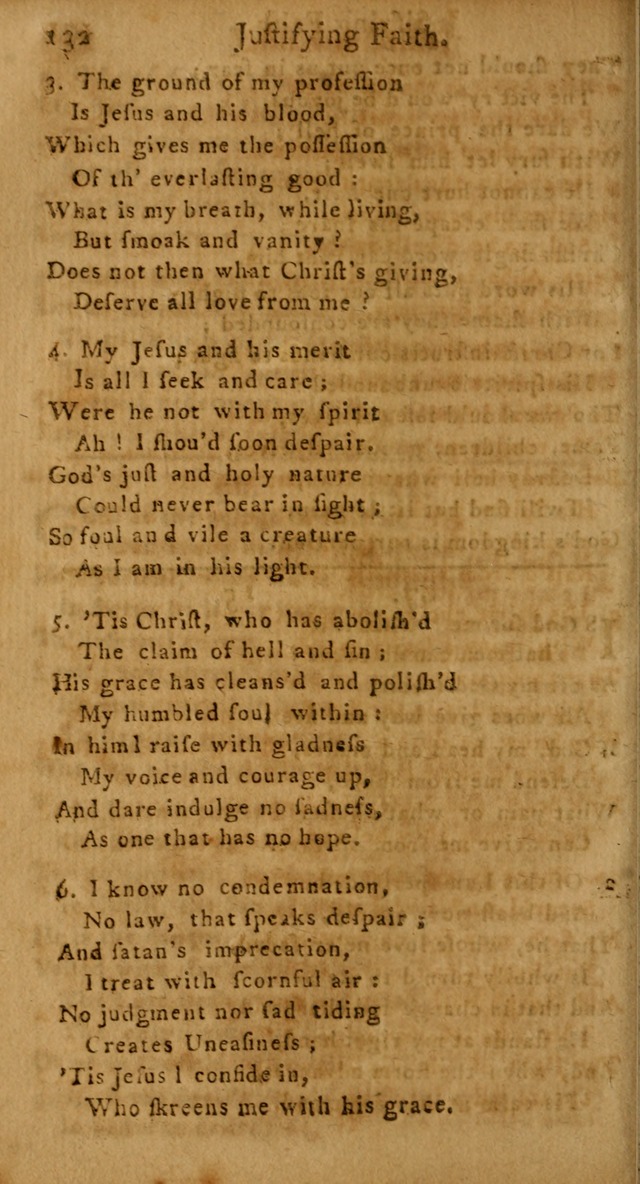 132 Juſtifying Faith.
3. The ground of my profeſſion
Is Jeſus and his blood,
Which gives me the poſſeſſion
Of th' everlaſting good :
What is my breath, while living,
But ſmoak and vanity ?
Does not then what Chriſt's giving,
Deſerve all love from me ?
4. My Jeſus and his merit
Is all I ſeek and care ;
Were he not with my ſpirit
Ah ! I ſhou'd ſoon deſpair.
God's juſt and holy nature
Could never bear in ſight ;
So foul and vile a creature
As I am in his light.
5. 'Tis Chriſt, who has aboliſh'd
The claim of hell and ſin ;
His grace has cleans'd and poliſh'd
My humbled ſoul within :
In him I raiſe with gladneſs
My voice and courage up,
And dare indulge no ſadneſs,
As one that has no hope.
6. I know no condemnation,
No law, that ſpeaks deſpair ;
And ſatan's imprecation,
I treat with ſcornful air :
No judgment nor ſad tiding
Creates Uneaſineſs ;
'Tis Jeſus I confide in,
Who ſkreens me with his grace.